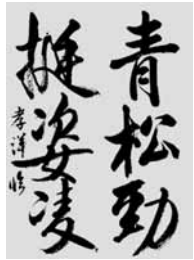 青松勁
挺姿凌
孝洋临